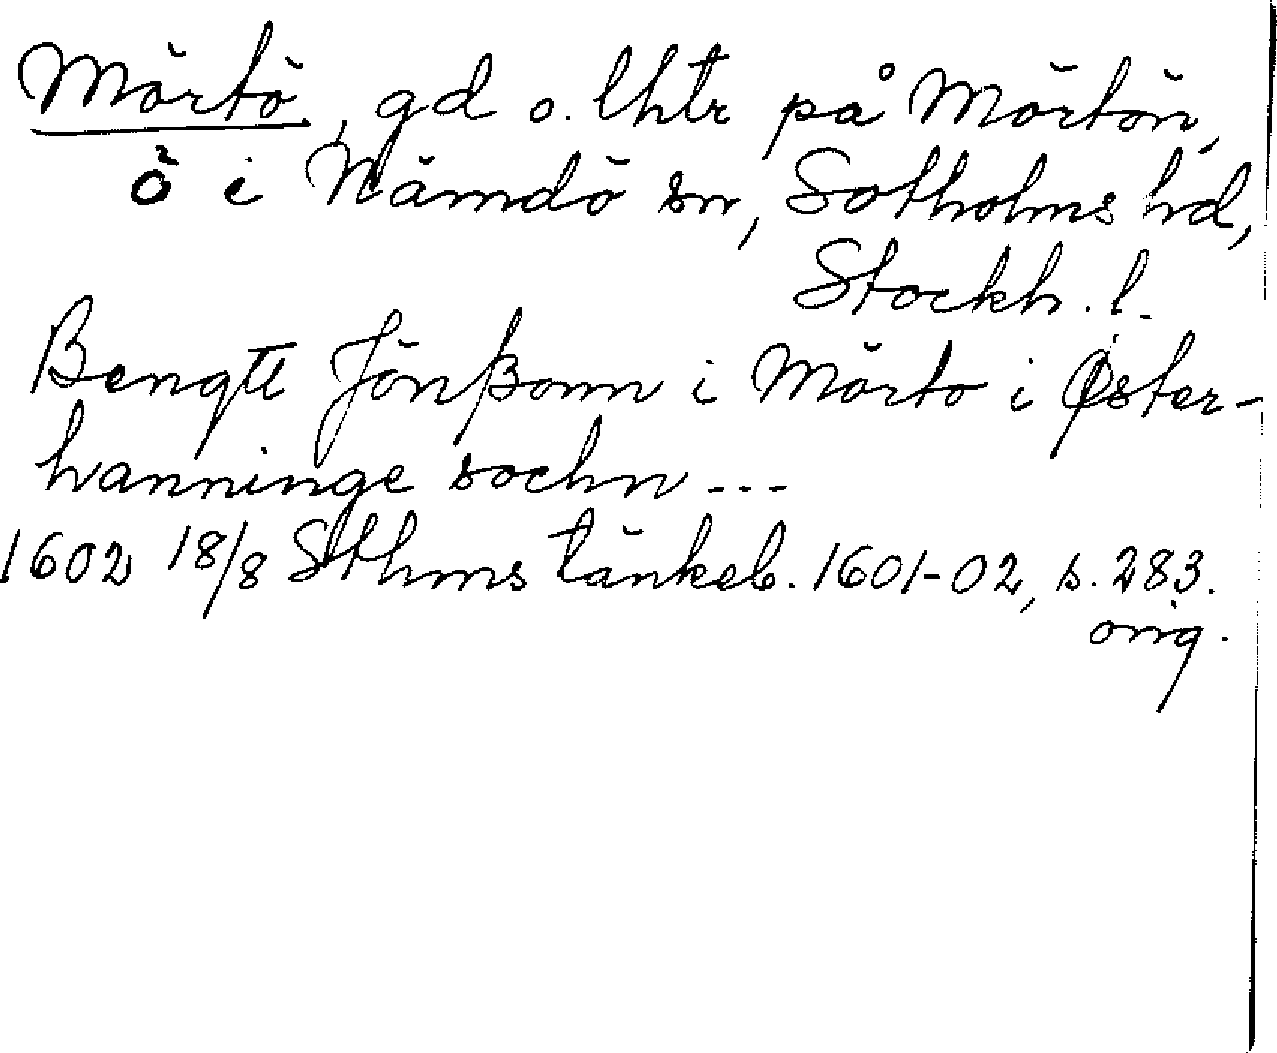 Mörtö, gd o. lhtr på Mörtön,
ö i Nämdö sn, Sotholms hd,
Stockh. l.
Bengtt Jönßonn i Mörtö i Øster-
hanninge sochn ---
1602 18/8 Sthms tänkeb. 1601-02, s. 283.
orig.